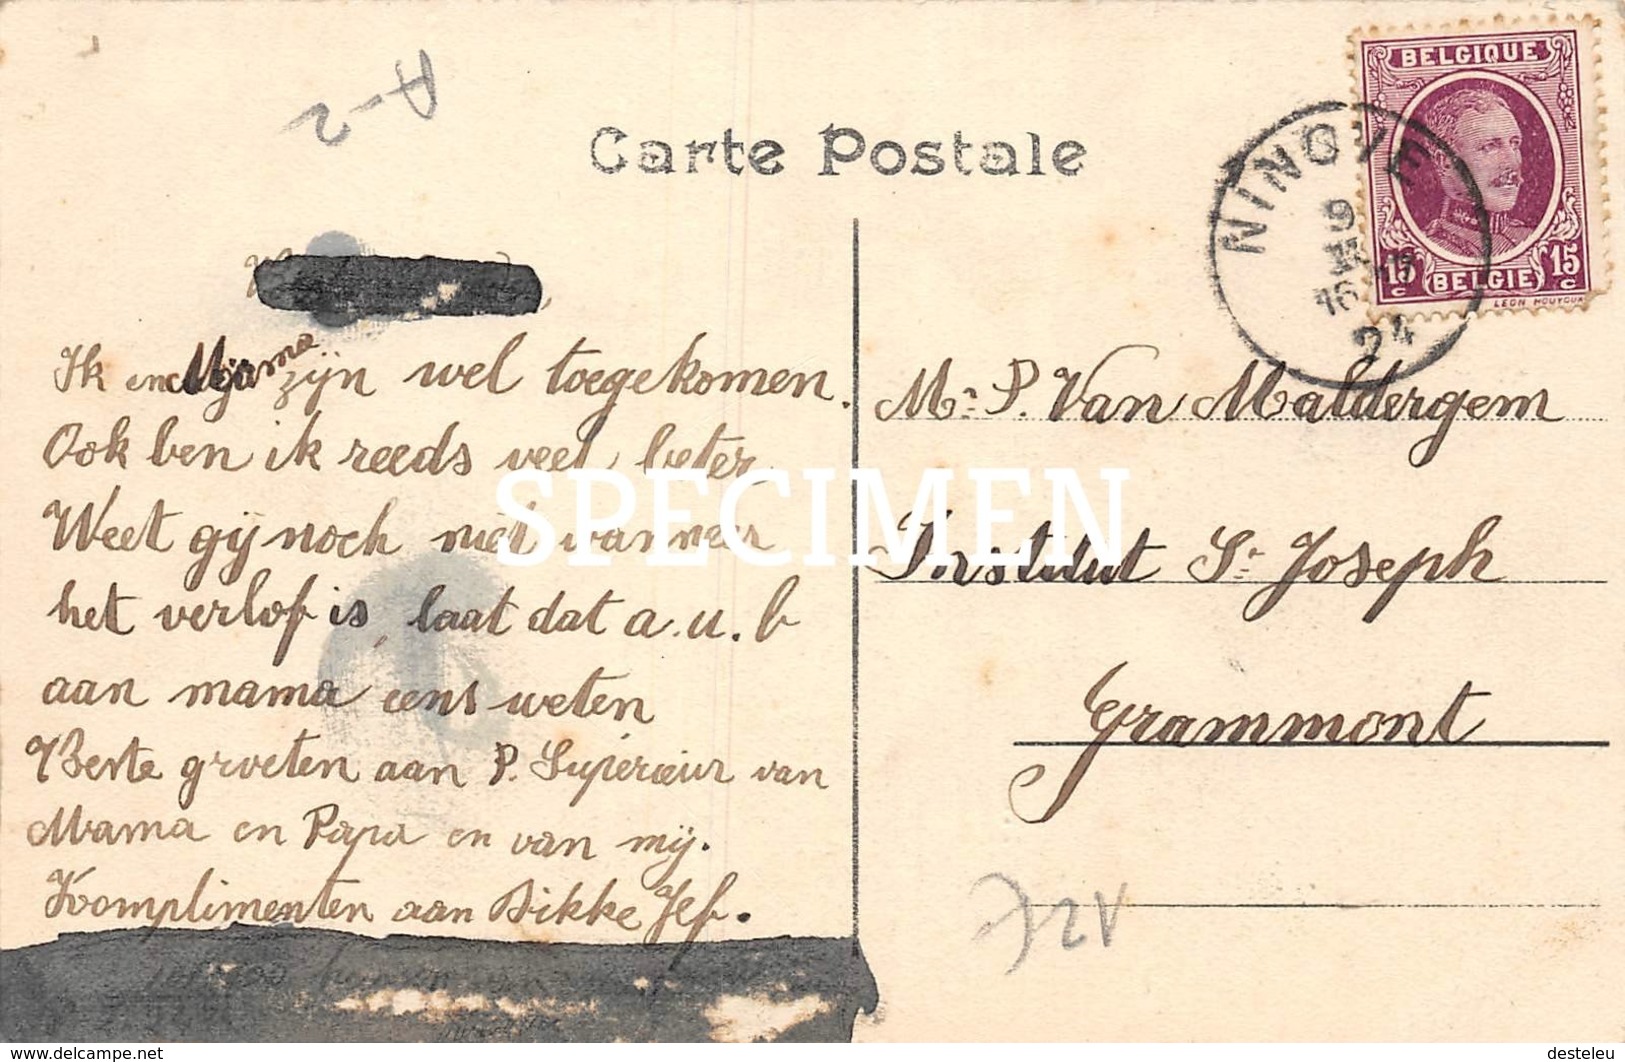 A-2
Carte Postale
BELGIQUE
15 c BELGIE 15 c
NINOVE
9
16
24
Ik en Mama zijn wel toegekomen.
Ook ben ik reeds veel beter
Weet gij noch niet wanneer
het verlof is, laat dat a.u.b
aan mama eens weten
Beste groeten aan P. Supérieur van
Mama en Papa en van mij.
Komplimenten aan Dikke Jef.
Mr. P. Van Maldergem
Institut St Joseph
Grammont
SPECIMEN
www.delcampe.net
desteleu